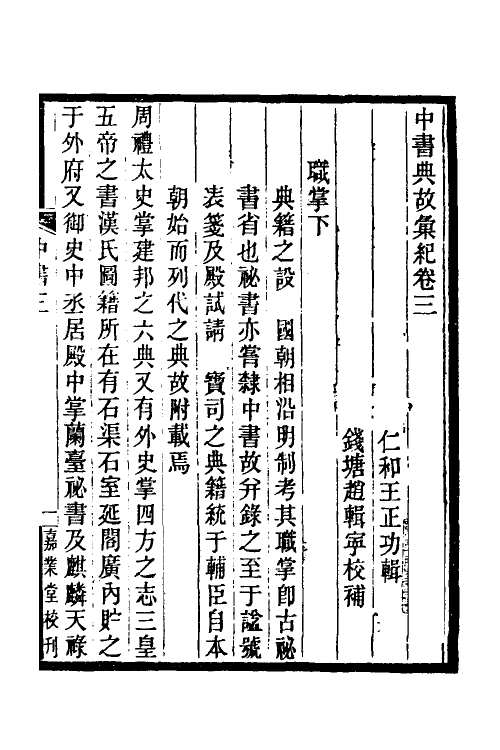 中書典故彙紀卷三
仁和王正功輯
錢塘趙輯寧校補
職掌下
典籍之設　國朝相沿明制考其職掌卽古祕
書省也祕書亦嘗隸中書故幷錄之至于謚號
表箋及殿試請　寶司之典籍統于輔臣自本
朝始而列代之典故附載焉
周禮太史掌建邦之六典又有外史掌四方之志三皇
五帝之書漢氏圖籍所在有石渠石室延閣廣內貯之
于外府又御史中丞居殿中掌蘭臺祕書及麒麟天祿
中書三
一
嘉業堂校刊